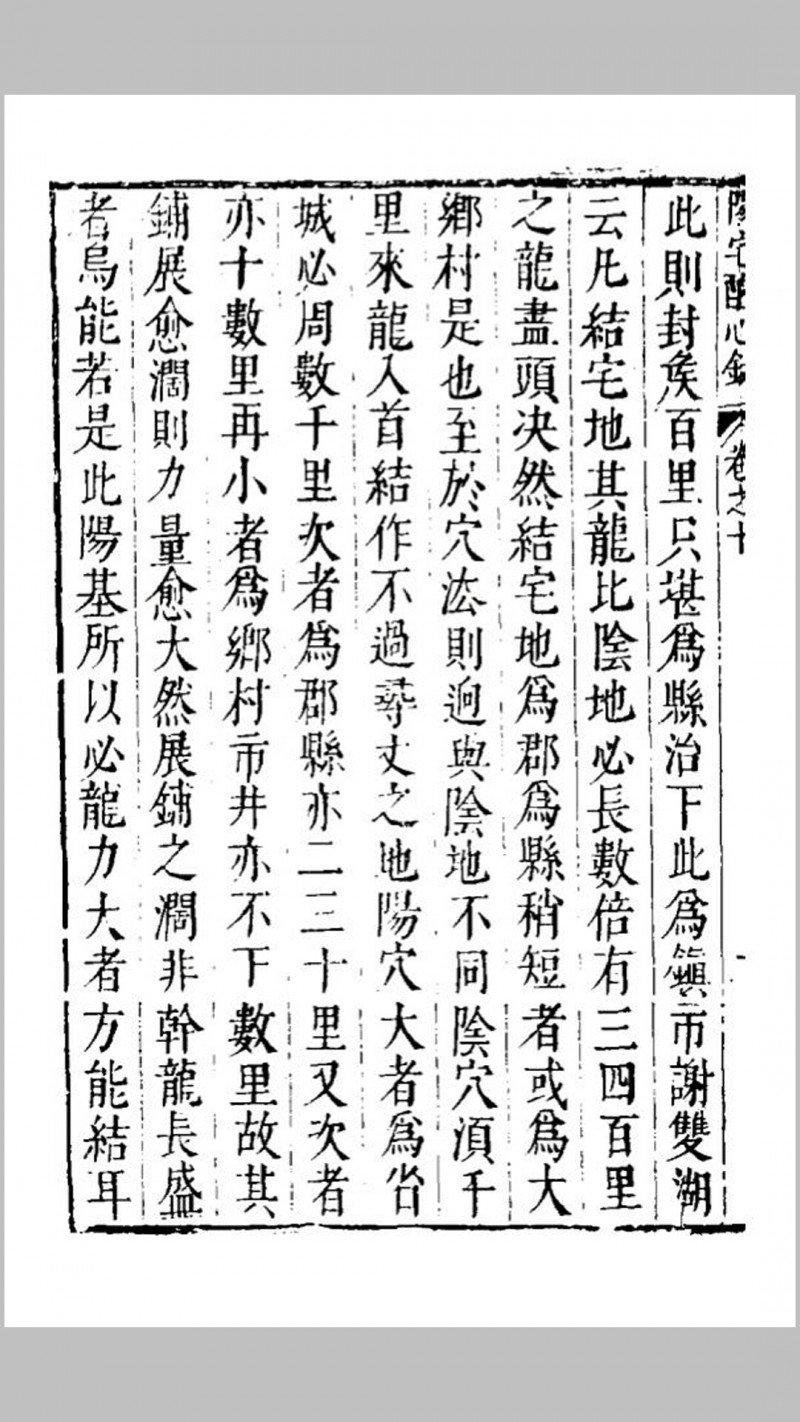 陽宅醒心錄 卷之十
此則封矦百里只堪爲縣治下此爲鎭市謝雙湖
云凡結宅地其龍比陰地必長數倍有三四百里
之龍盡頭决然結宅地爲郡爲縣稍短者或爲大
鄉村是也至於穴法則逈與陰地不同陰穴湏千
里來龍入首結作不過尋丈之地陽穴大者爲省
城必周數千里次者爲郡縣亦二三十里又次者
亦十數里再小者爲鄉村市井亦不下數里故其
鋪展愈濶則力量愈大然展鋪之濶非幹龍長盛
者烏能若是此陽基所以必龍力大者方能結耳